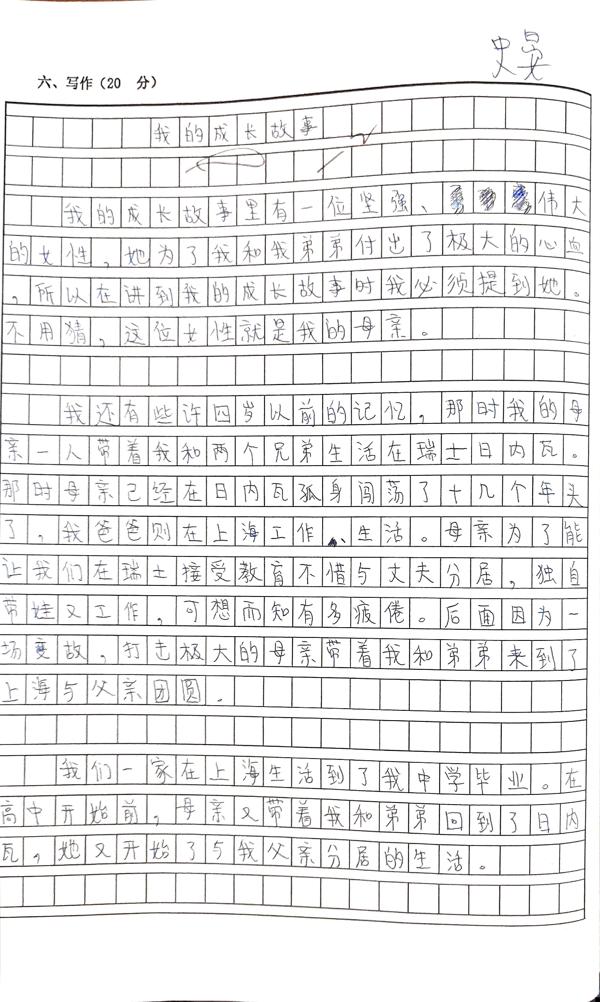 史晃
六、写作(20 分)
我的成长故事
我的成长故事里有一位坚强、伟大
的女性，她为了我和我弟弟付出了极大的心血
，所以在讲到我的成长故事时我必须提到她。
不用猜，这位女性就是我的母亲。
我还有些许四岁以前的记忆，那时我的母
亲一人带着我和两个兄弟生活在瑞士日内瓦。
那时母亲已经在日内瓦孤身闯荡了十几个年头
了，我爸爸则在上海工作、生活。母亲为了能
让我们在瑞士接受教育不惜与丈夫分居，独自
带娃又工作，可想而知有多疲倦。后面因为一
场变故，打击极大的母亲带着我和弟弟来到了
上海与父亲团圆.
我们一家在上海生活到了我中学毕业。在
高中开始前，母亲又带着我和弟弟回到了日内
瓦，她又开始了与我父亲分居的生活。